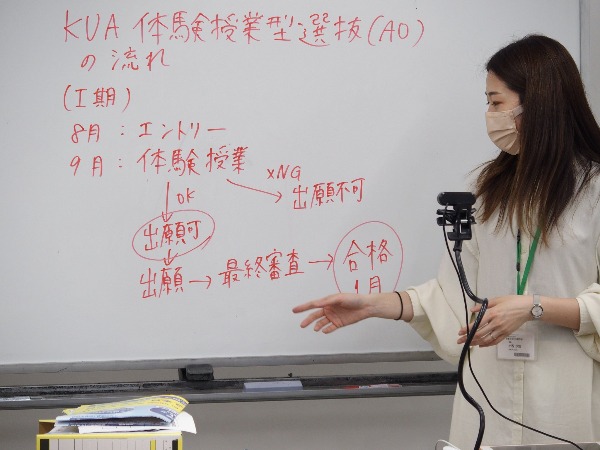 KUA 体験授業型選抜(AO)
の流れ
(I期)
8月：エントリー
9月：体験授業
OK
×NG
出願不可
出願可
出願→最終審査→合格
9月